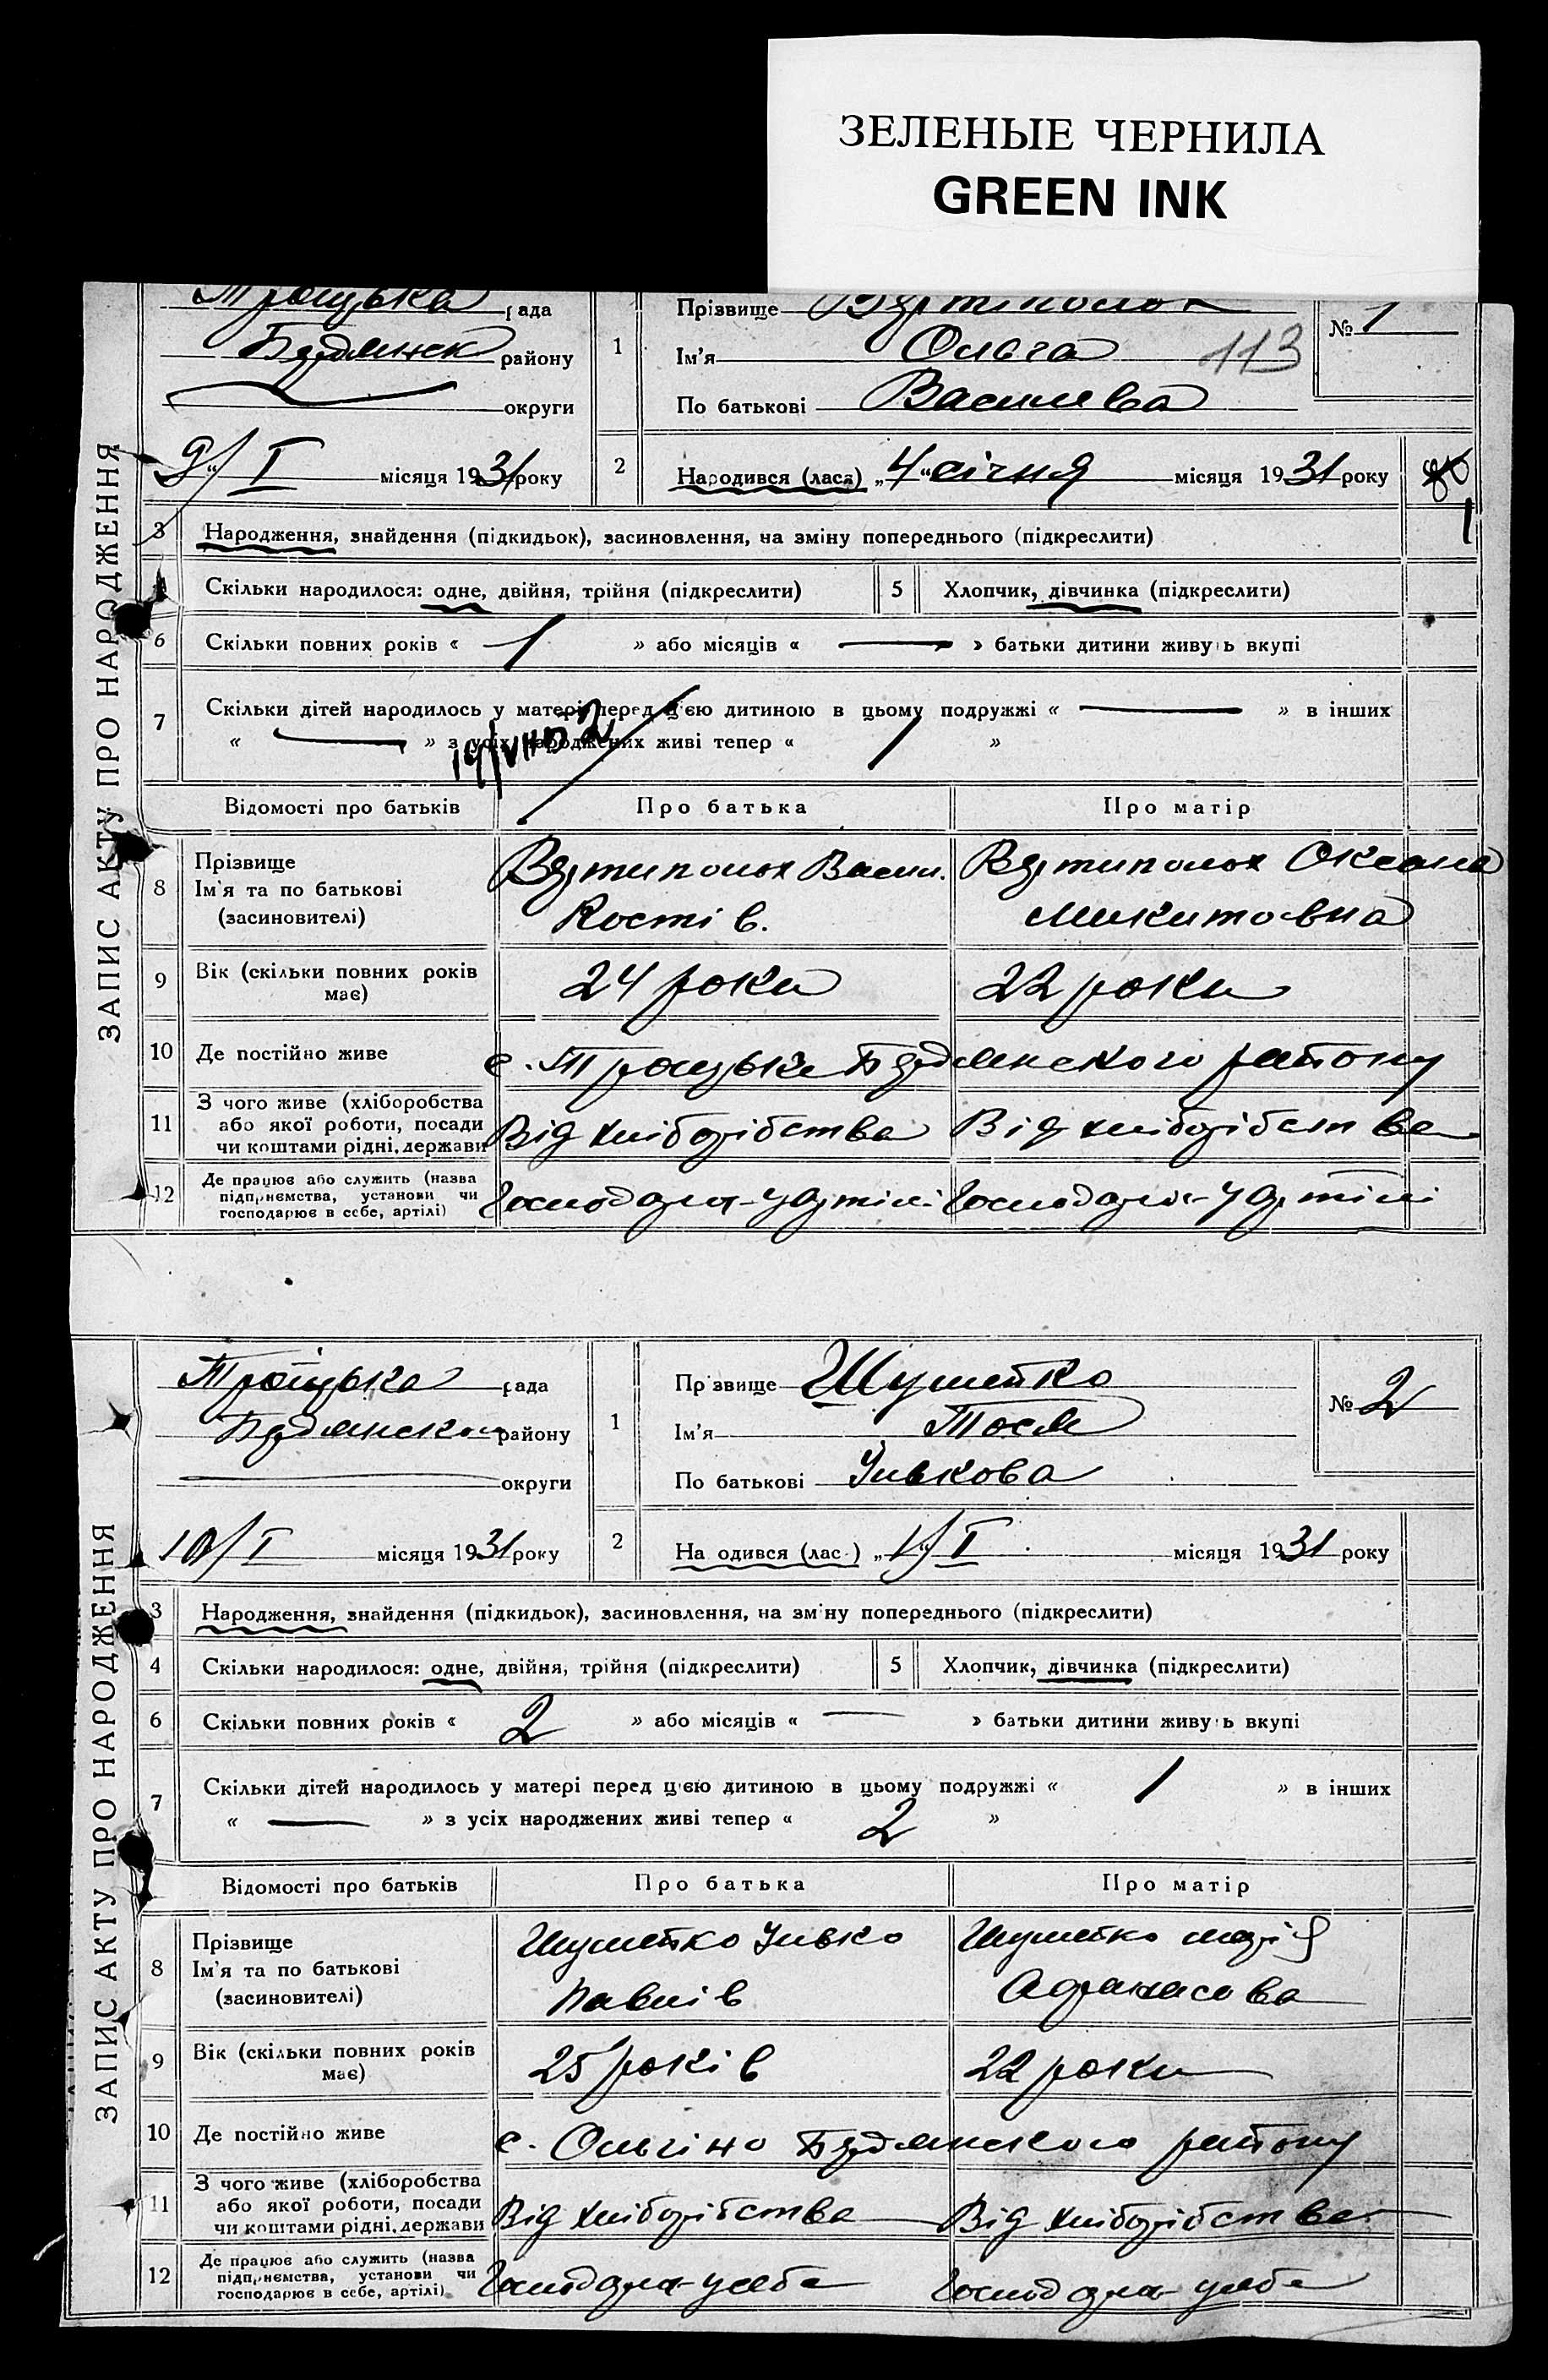 ЗЕЛЕНЫЕ ЧЕРНИЛА
GREEN INK
ЗАПИС АКТУ ПРО НАРОДЖЕННЯ
Троїцька рада
району
округи
9/I місяця 1931 року
1
Прізвище Вертиполох
Ім'я Ольга
113
По батькові Василева
№ 1
2
Народився (лася) „4“ січня місяця 1931 року
1
3 Народження, знайдення (підкидьок), засиновлення, на зміну попереднього (підкреслити)
4 Скільки народилося: одне, двійня, трійня (підкреслити) 5 Хлопчик, дівчинка (підкреслити)
6 Скільки повних років « 1 » або місяців « — » батьки дитини живуть вкупі
7 Скільки дітей народилось у матері перед цією дитиною в цьому подружжі « — » в інших
« — » з усіх народжених живі тепер « 1 »
Відомості про батьків Про батька Про матір
8 Прізвище
Ім'я та по батькові
(засиновителі)
Вертиполох Васил.
Костів.
Вертиполох Оксана
Микитовна
9 Вік (скільки повних років має) 24 роки 22 роки
10 Де постійно живе с. Троїцьке району
11 З чого живе (хліборобства
або якої роботи, посади
чи коштами рідні, держави
Від хліборібства Від хліборібства
12 Де працює або служить (назва
підприємства, установи чи
господарює в себе, артілі)
Господарює у артілі Господарює у артілі
ЗАПИС АКТУ ПРО НАРОДЖЕННЯ
Троїцька рада
району
округи
10/I місяця 1931 року
1
Прізвище Шумейко
Ім'я Тося
По батькові Улькова
№ 2
2
Народився (лась) „1“ I місяця 1931 року
3 Народження, знайдення (підкидьок), засиновлення, на зміну попереднього (підкреслити)
4 Скільки народилося: одне, двійня, трійня (підкреслити) 5 Хлопчик, дівчинка (підкреслити)
6 Скільки повних років « 2 » або місяців « — » батьки дитини живуть вкупі
7 Скільки дітей народилось у матері перед цією дитиною в цьому подружжі « 1 » в інших
« — » з усіх народжених живі тепер « 2 »
Відомості про батьків Про батька Про матір
8 Прізвище
Ім'я та по батькові
(засиновителі)
Шумейко Улько
Павлів
Шумейко Марія
Афанасова
9 Вік (скільки повних років має) 25 років 22 роки
10 Де постійно живе с. Ольгіно району
11 З чого живе (хліборобства
або якої роботи, посади
чи коштами рідні, держави
Від хліборібства Від хліборібства
12 Де працює або служить (назва
підприємства, установи чи
господарює в себе, артілі)
Господарює у себе Господарює у себе